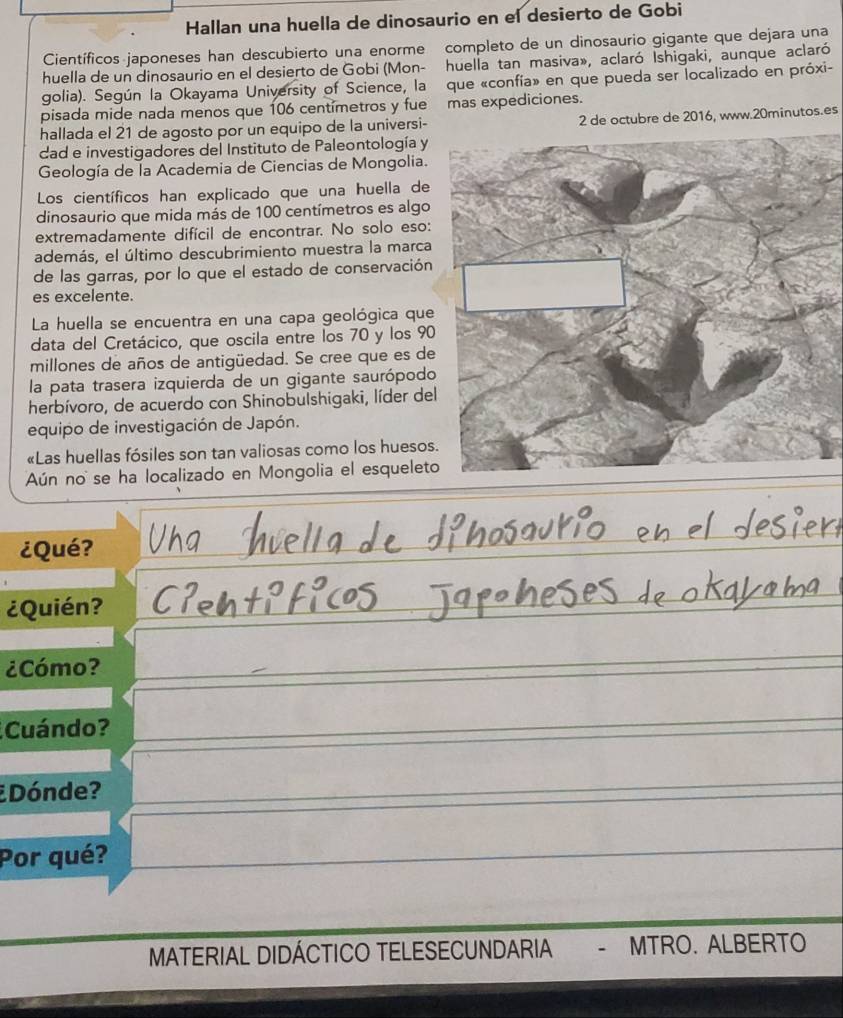 Hallan una huella de dinosaurio en el desierto de Gobi
Científicos japoneses han descubierto una enorme
huella de un dinosaurio en el desierto de Gobi (Mon-
golia). Según la Okayama University of Science, la
pisada mide nada menos que 106 centímetros y fue
hallada el 21 de agosto por un equipo de la universi-
dad e investigadores del Instituto de Paleontología y
Geología de la Academia de Ciencias de Mongolia.
Los científicos han explicado que una huella de
dinosaurio que mida más de 100 centímetros es algo
extremadamente difícil de encontrar. No solo eso:
además, el último descubrimiento muestra la marca
de las garras, por lo que el estado de conservación
es excelente.
La huella se encuentra en una capa geológica que
data del Cretácico, que oscila entre los 70 y los 90
millones de años de antigüedad. Se cree que es de
la pata trasera izquierda de un gigante saurópodo
herbívoro, de acuerdo con Shinobulshigaki, líder del
equipo de investigación de Japón.
«Las huellas fósiles son tan valiosas como los huesos.
Aún no se ha localizado en Mongolia el esqueleto
completo de un dinosaurio gigante que dejara una
huella tan masiva», aclaró Ishigaki, aunque aclaró
que «confía» en que pueda ser localizado en próxi-
mas expediciones.
2 de octubre de 2016, www.20minutos.es
¿Qué? Una huella de dinosaurio en el desiert
¿Quién? Cientificos Japoneses de okayama
¿Cómo?
¿Cuándo?
¿Dónde?
Por qué?
MATERIAL DIDÁCTICO TELESECUNDARIA - MTRO. ALBERTO